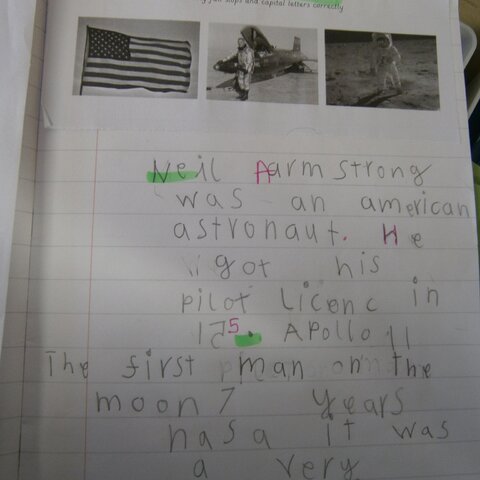 full stops and capital letters correctly
Neil Aarmstrong
was an american
astronaut. He
got his
pilot Licenc in
15. Apollo 11
The first man on the
moon 7 years
nasa it was
a very